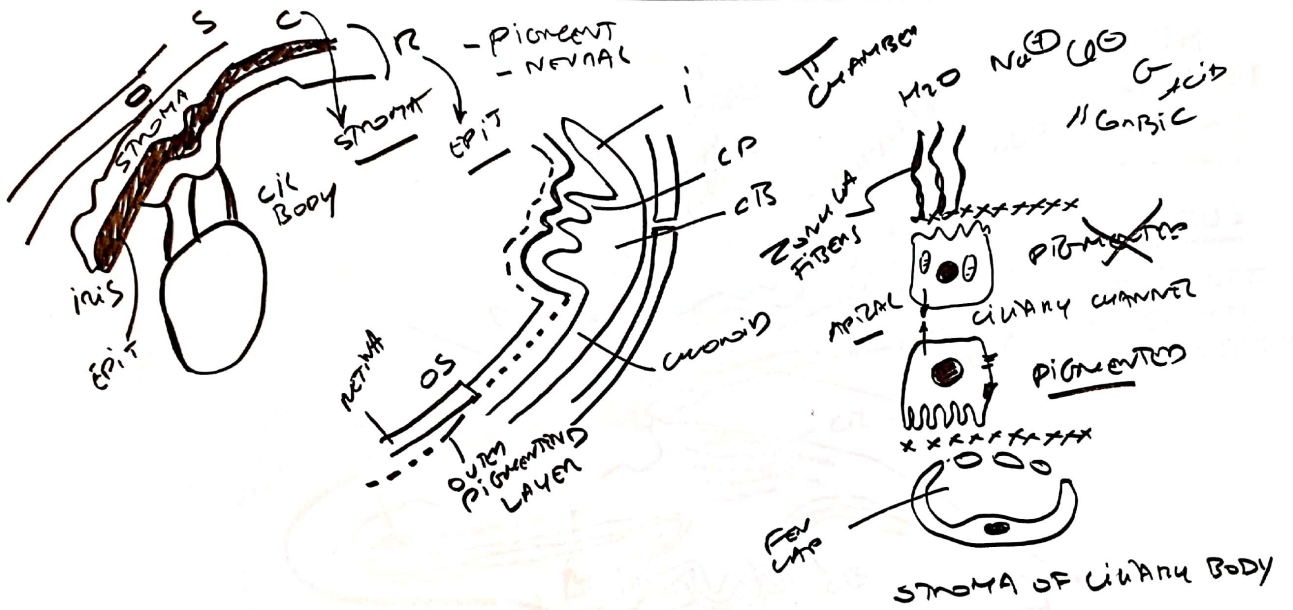 S
C
R
- PIGMENT
- NEURAL
STROMA
STROMA
EPIT
CIL
BODY
IRIS
EPIT
i
CP
CB
CHOROID
OS
RETINA
OUTER
PIGMENTED
LAYER
II
CHAMBER
H2O
Na⊕ Cl⊖
ACID
ZONULA
FIBERS
PIGMENTED
CILIARY CHANNEL
APICAL
PIGMENTED
FEN
CAP
STROMA OF CILIARY BODY